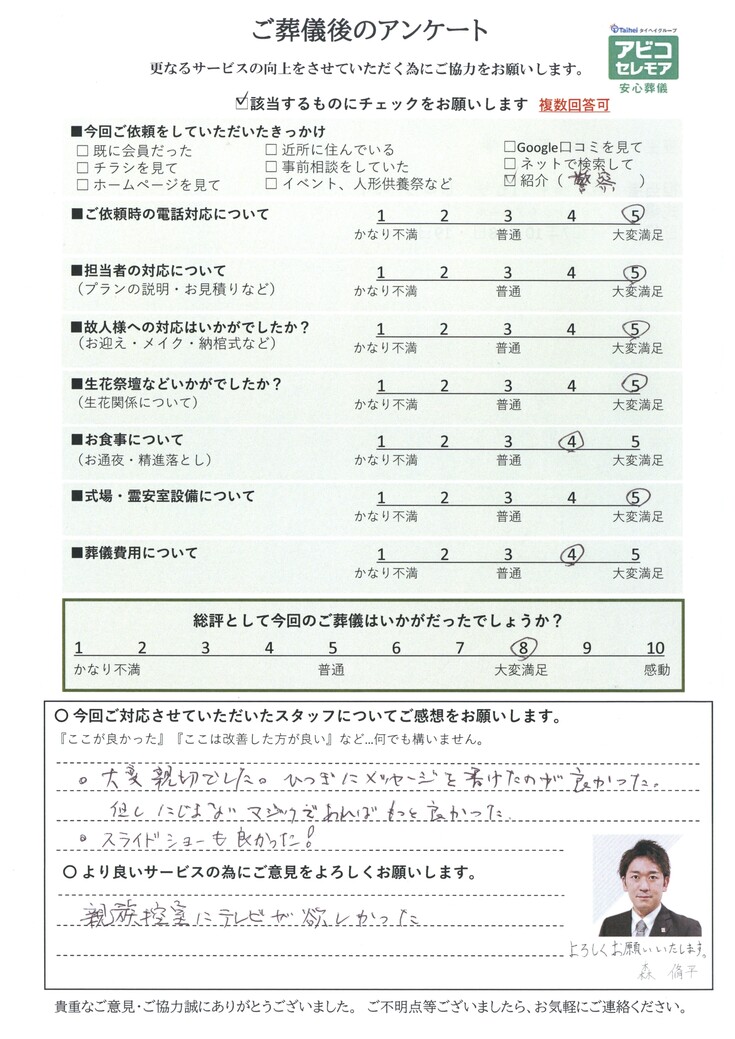 ご葬儀後のアンケート
Taihei タイヘイグループ
アビコ
セレモア
安心葬儀
更なるサービスの向上をさせていただく為にご協力をお願いします。
☑該当するものにチェックをお願いします 複数回答可
■今回ご依頼をしていただいたきっかけ
□ 既に会員だった □ 近所に住んでいる □Google口コミを見て
□ チラシを見て □ 事前相談をしていた □ ネットで検索して
□ ホームページを見て □ イベント、人形供養祭など ☑ 紹介（ 警察 ）
■ご依頼時の電話対応について 1 2 3 4 5
かなり不満 普通 大変満足
■担当者の対応について 1 2 3 4 5
（プランの説明・お見積りなど） かなり不満 普通 大変満足
■故人様への対応はいかがでしたか？ 1 2 3 4 5
（お迎え・メイク・納棺式など） かなり不満 普通 大変満足
■生花祭壇などいかがでしたか？ 1 2 3 4 5
（生花関係について） かなり不満 普通 大変満足
■お食事について 1 2 3 4 5
（お通夜・精進落とし） かなり不満 普通 大変満足
■式場・霊安室設備について 1 2 3 4 5
かなり不満 普通 大変満足
■葬儀費用について 1 2 3 4 5
かなり不満 普通 大変満足
総評として今回のご葬儀はいかがだったでしょうか？
1 2 3 4 5 6 7 8 9 10
かなり不満 普通 大変満足 感動
〇 今回ご対応させていただいたスタッフについてご感想をお願いします。
『ここが良かった』『ここは改善した方が良い』など…何でも構いません。
。大変親切でした。ひつぎにメッセージを書けたのが良かった。
但しにじまないマジックであればもっと良かった。
• スライドショーも良かった！
〇 より良いサービスの為にご意見をよろしくお願いします。
親族控室にテレビが欲しかった
よろしくお願いいたします。
森
貴重なご意見・ご協力誠にありがとうございました。 ご不明点等ございましたら、お気軽にご連絡ください。